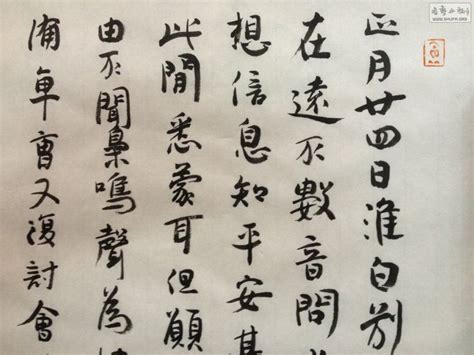 正月廿四日淮白別
在遠不數音問
想信息知平安甚
此間悉蒙耳但願
由不聞梟鳴聲為
浦曹又復討會
WWW.SHUFA.ORG